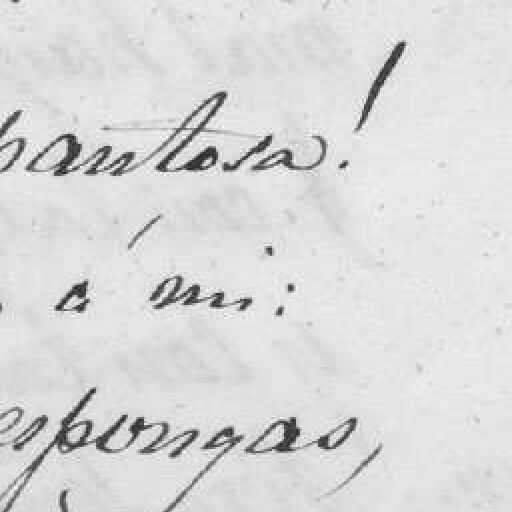 pantosa!
á mi:
espongas,